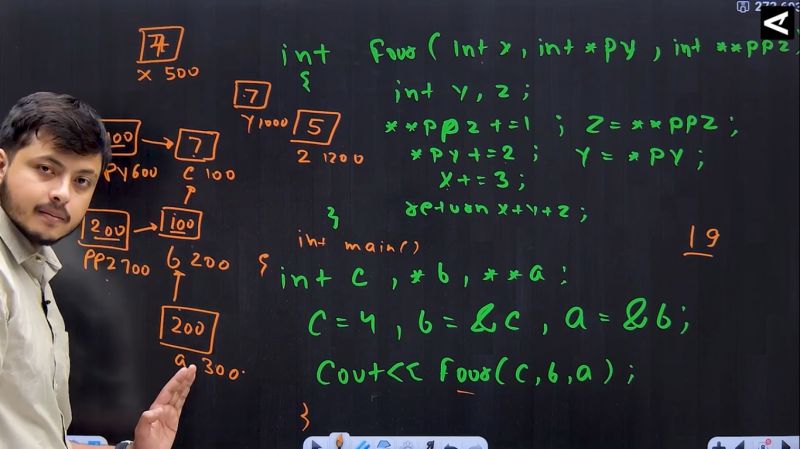 int Four( int x, int *py, int **ppz)
{
int y, z;
**ppz+=1 ; z=**ppz;
*py+=2 ; y=*py;
x+=3;
return x+y+z;
}
int main()
{
int c, *b, **a;
c=4, b=&c, a=&b;
Cout<< Four(c,b,a);
}
19
x 500
7
y 1000
5
z 1200
100
py 600
7
c 100
200
ppz 700
100
b 200
200
a 300